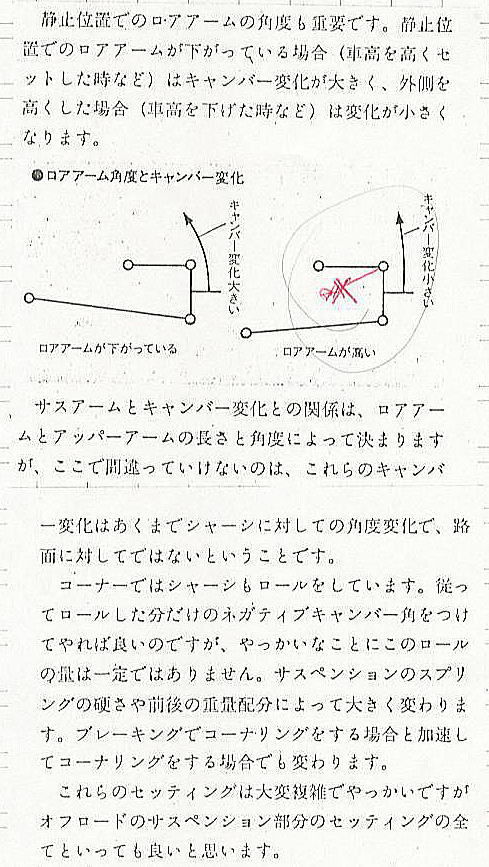 静止位置でのロアアームの角度も重要です。静止位
置でのロアアームが下がっている場合（車高を高くセ
ットした時など）はキャンバー変化が大きく、外側を
高くした場合（車高を下げた時など）は変化が小さく
なります。
●ロアアーム角度とキャンバー変化
キャンバー変化大きい
ロアアームが下がっている
キャンバー変化小さい
ロアアームが高い
サスアームとキャンバー変化との関係は、ロアアー
ムとアッパーアームの長さと角度によって決まります
が、ここで間違っていけないのは、これらのキャンバ
ー変化はあくまでシャーシに対しての角度変化で、路
面に対してではないということです。
コーナーではシャーシもロールをしています。従っ
てロールした分だけのネガティブキャンバー角をつけ
てやれば良いのですが、やっかいなことにこのロール
の量は一定ではありません。サスペンションのスプリ
ングの硬さや前後の重量配分によって大きく変わりま
す。ブレーキングでコーナリングをする場合と加速し
てコーナリングをする場合でも変わります。
これらのセッティングは大変複雑でやっかいですが
オフロードのサスペンション部分のセッティングの全
てといっても良いと思います。